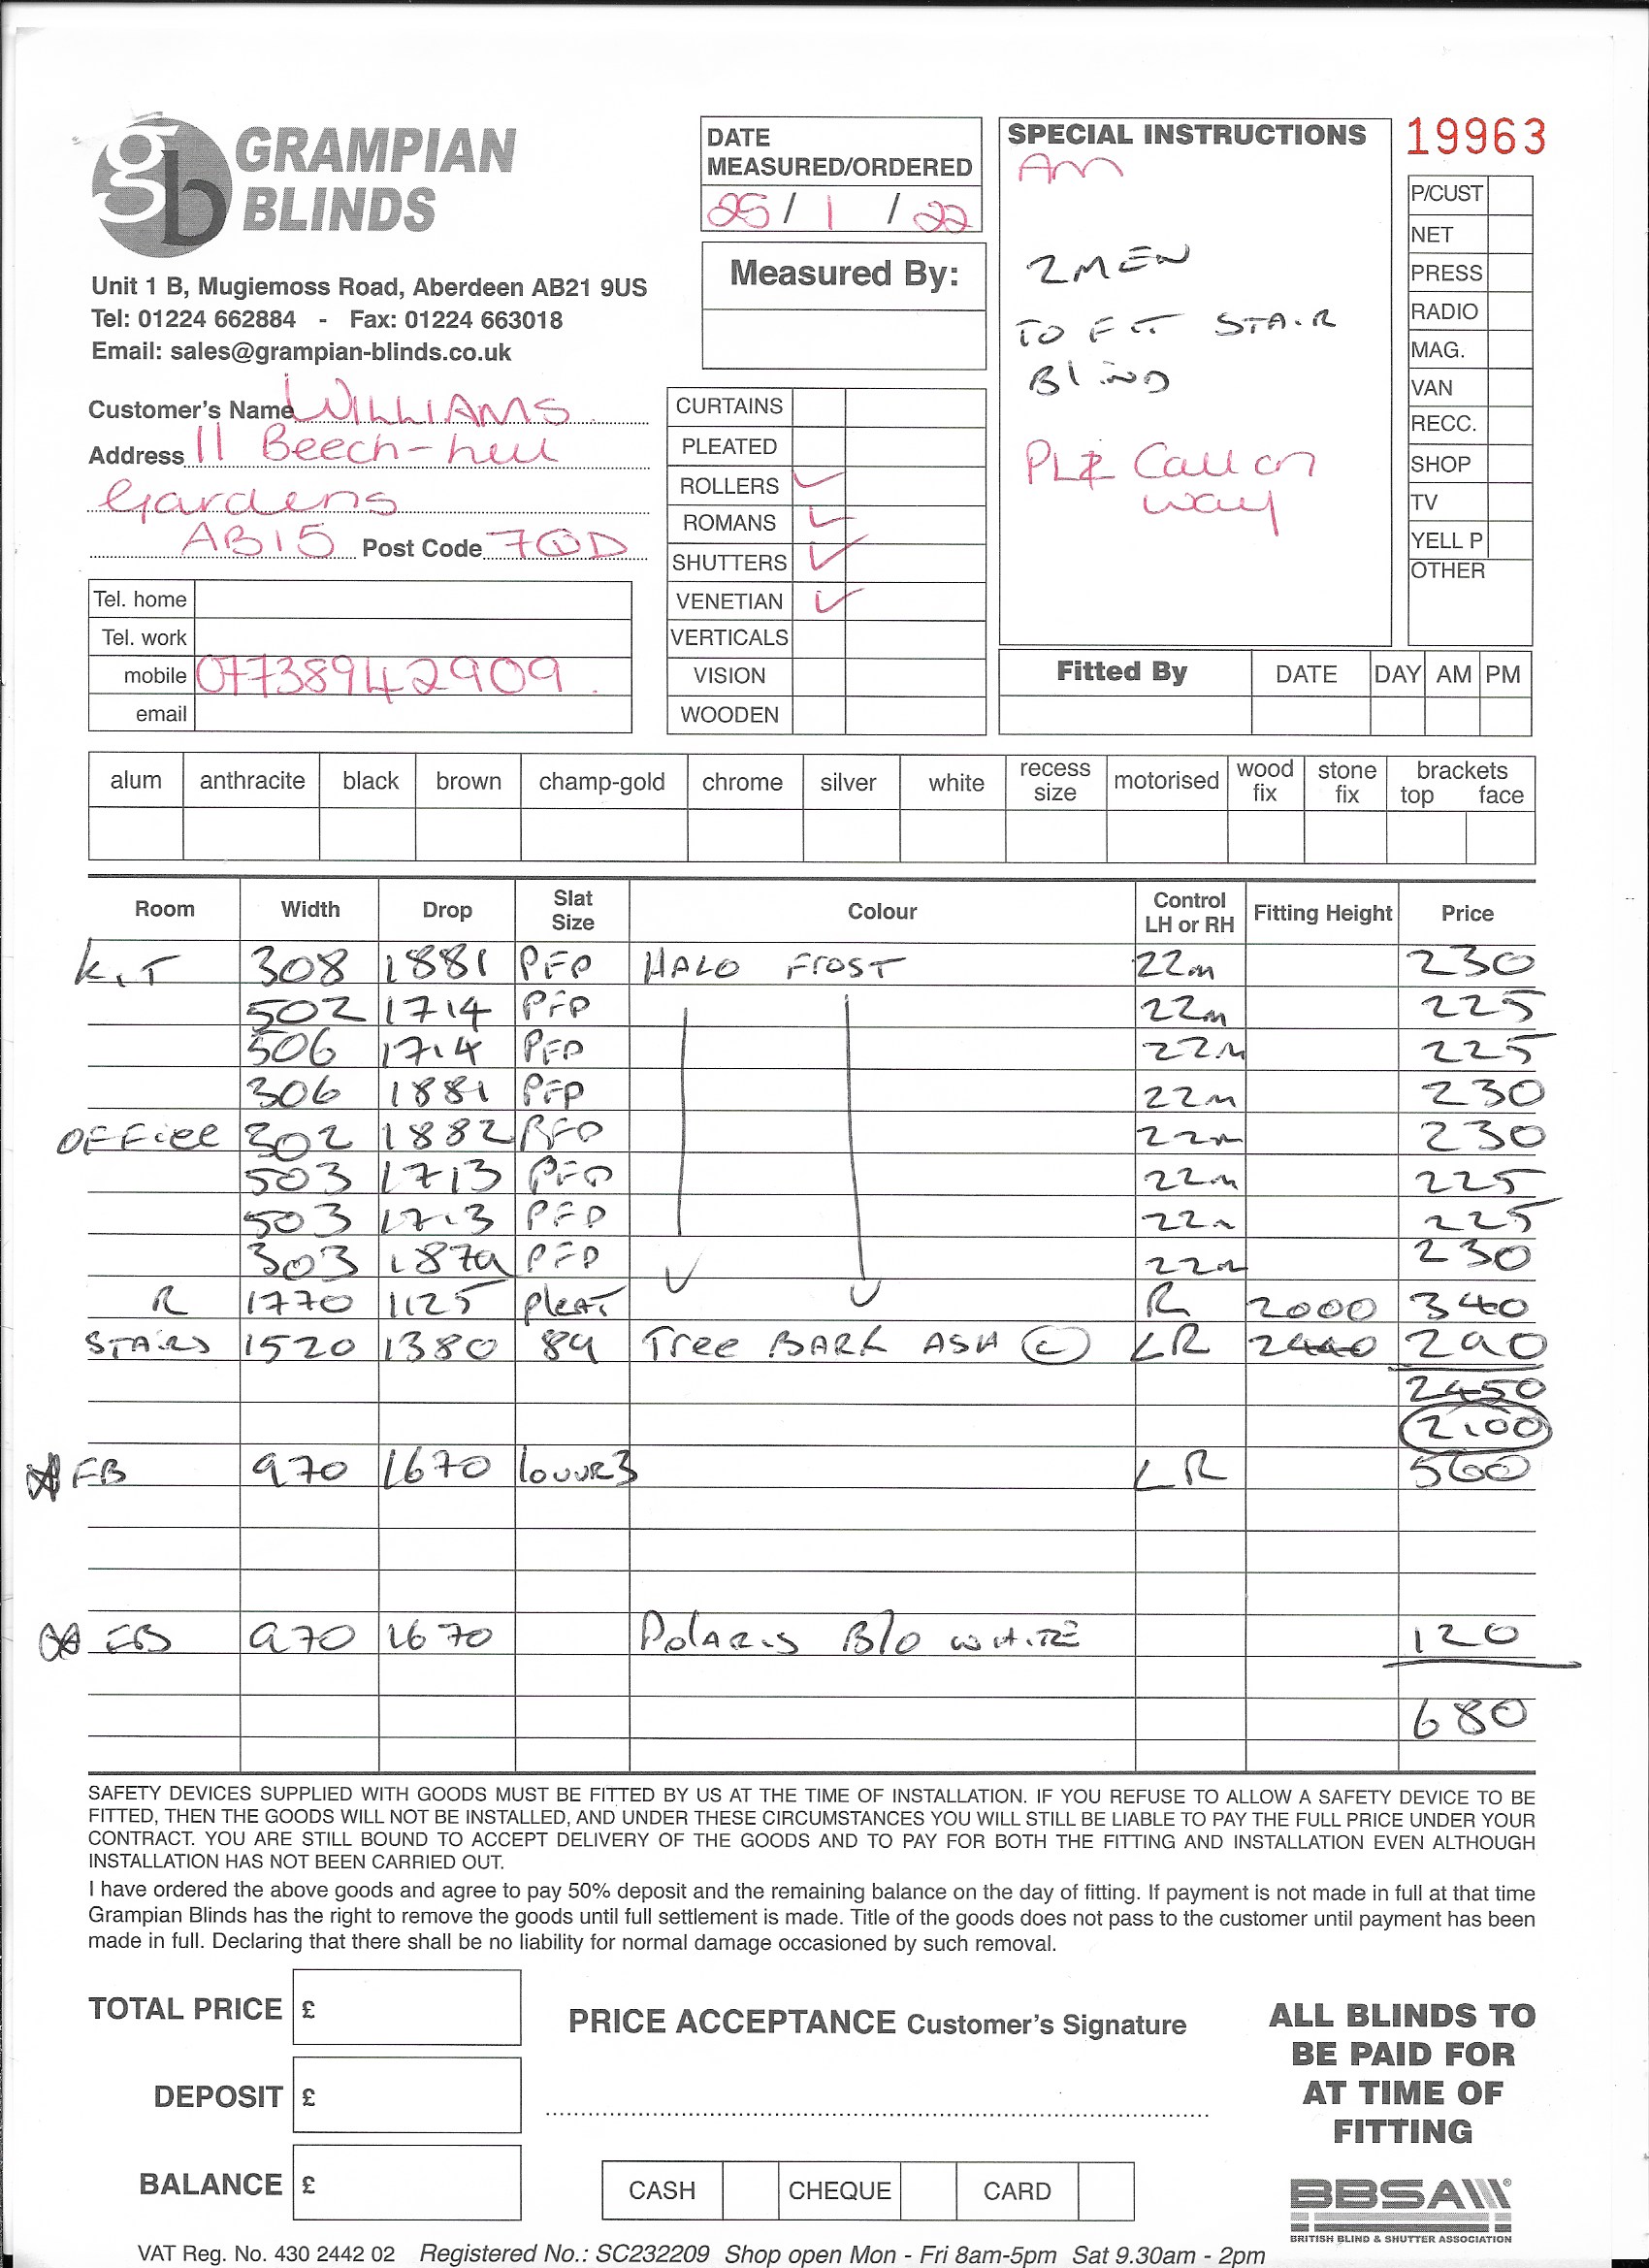 gb GRAMPIAN BLINDS
Unit 1 B, Mugiemoss Road, Aberdeen AB21 9US
Tel: 01224 662884 - Fax: 01224 663018
Email: sales@grampian-blinds.co.uk
Customer's Name WILLIAMS
Address 11 Beech-hill
Gardens
AB15 Post Code 7QD
Tel. home
Tel. work
mobile 07738942909
email
DATE
MEASURED/ORDERED
25 / 1 / 22
Measured By:
CURTAINS
PLEATED
ROLLERS ✓
ROMANS ✓
SHUTTERS ✓
VENETIAN ✓
VERTICALS
VISION
WOODEN
SPECIAL INSTRUCTIONS
AM
2 MEN
TO FIT STAIR
BLIND
PLZ Call on
way
19963
P/CUST
NET
PRESS
RADIO
MAG.
VAN
RECC.
SHOP
TV
YELL P
OTHER
Fitted By DATE DAY AM PM
alum anthracite black brown champ-gold chrome silver white recess size motorised wood fix stone fix brackets top face
Room Width Drop Slat Size Colour Control LH or RH Fitting Height Price
KIT 308 1881 PFP HALO FROST 22m 230
502 1714 PFP 22m 225
506 1714 PFP 22m 225
306 1881 PFP 22m 230
OFFICE 302 1882 PFP 22m 230
503 1713 PFP 22m 225
503 1713 PFP 22m 225
303 1879 PFP 22m 230
R 1770 1125 pleat R 2000 340
STAIRS 1520 1380 89 Tree BARK ASH C LR 290
2450
2100
FB 970 1670 LR 560
FB 970 1670 POLARIS B/O WHITE 120
680
SAFETY DEVICES SUPPLIED WITH GOODS MUST BE FITTED BY US AT THE TIME OF INSTALLATION. IF YOU REFUSE TO ALLOW A SAFETY DEVICE TO BE
FITTED, THEN THE GOODS WILL NOT BE INSTALLED, AND UNDER THESE CIRCUMSTANCES YOU WILL STILL BE LIABLE TO PAY THE FULL PRICE UNDER YOUR
CONTRACT. YOU ARE STILL BOUND TO ACCEPT DELIVERY OF THE GOODS AND TO PAY FOR BOTH THE FITTING AND INSTALLATION EVEN ALTHOUGH
INSTALLATION HAS NOT BEEN CARRIED OUT.
I have ordered the above goods and agree to pay 50% deposit and the remaining balance on the day of fitting. If payment is not made in full at that time
Grampian Blinds has the right to remove the goods until full settlement is made. Title of the goods does not pass to the customer until payment has been
made in full. Declaring that there shall be no liability for normal damage occasioned by such removal.
TOTAL PRICE £
DEPOSIT £
BALANCE £
PRICE ACCEPTANCE Customer's Signature
CASH CHEQUE CARD
ALL BLINDS TO
BE PAID FOR
AT TIME OF
FITTING
BBSA
BRITISH BLIND & SHUTTER ASSOCIATION
VAT Reg. No. 430 2442 02 Registered No.: SC232209 Shop open Mon - Fri 8am-5pm Sat 9.30am - 2pm